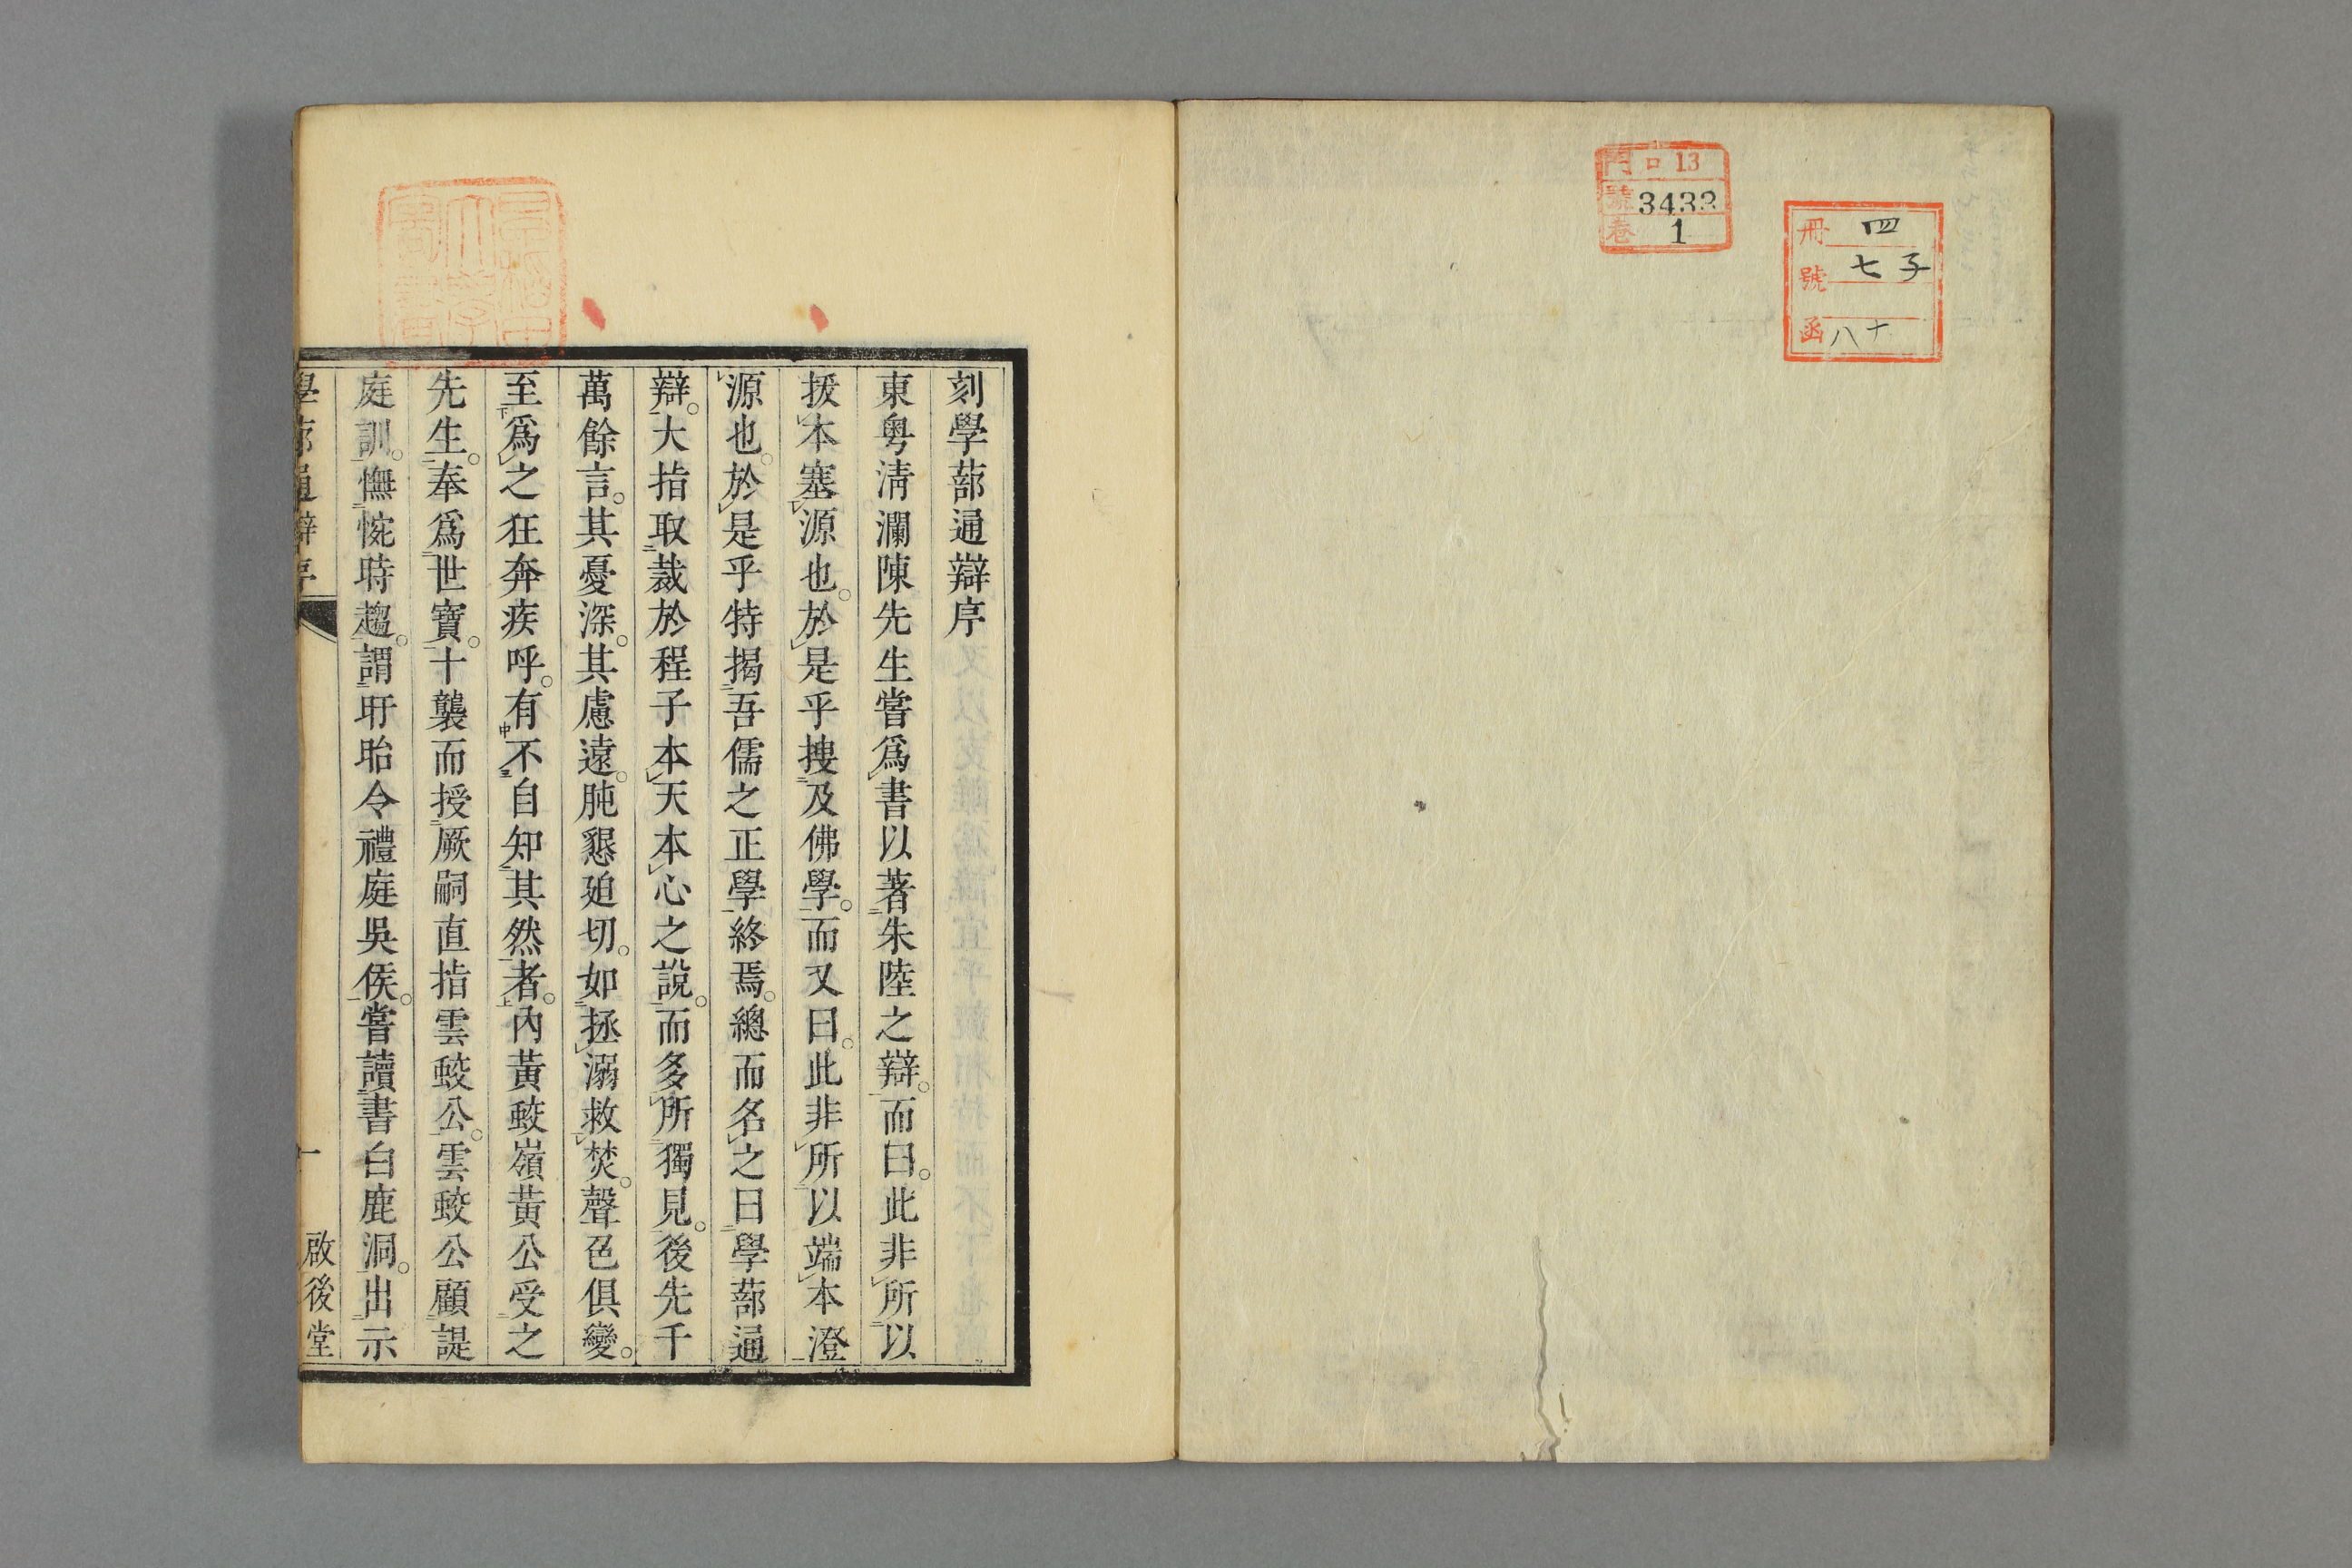 門 ロ 13
號 3433
巻 1
冊 四
號 子七
函 十八
刻學蔀通辯序
東粤清瀾陳先生嘗爲書以著朱陸之辯。而曰。此非所以
拔本塞源也。於是乎搜及佛學。而又曰。此非所以端本澄
源也。於是乎特揭吾儒之正學終焉。總而名之曰學蔀通
辯。大指取裁於程子本天本心之說。而多所獨見。後先千
萬餘言。其憂深。其慮遠。肫懇廹切。如拯溺救焚。聲色俱變。
至爲之狂奔疾呼。有不自知其然者。內黃蛟嶺黃公受之
先生。奉爲世寶。十襲而授厥嗣直指雲蛟公。雲蛟公顧諟
庭訓。憮惋時趨。謂盱眙令禮庭吳侯。嘗讀書白鹿洞。出示
學蔀通辯序
一
啟後堂